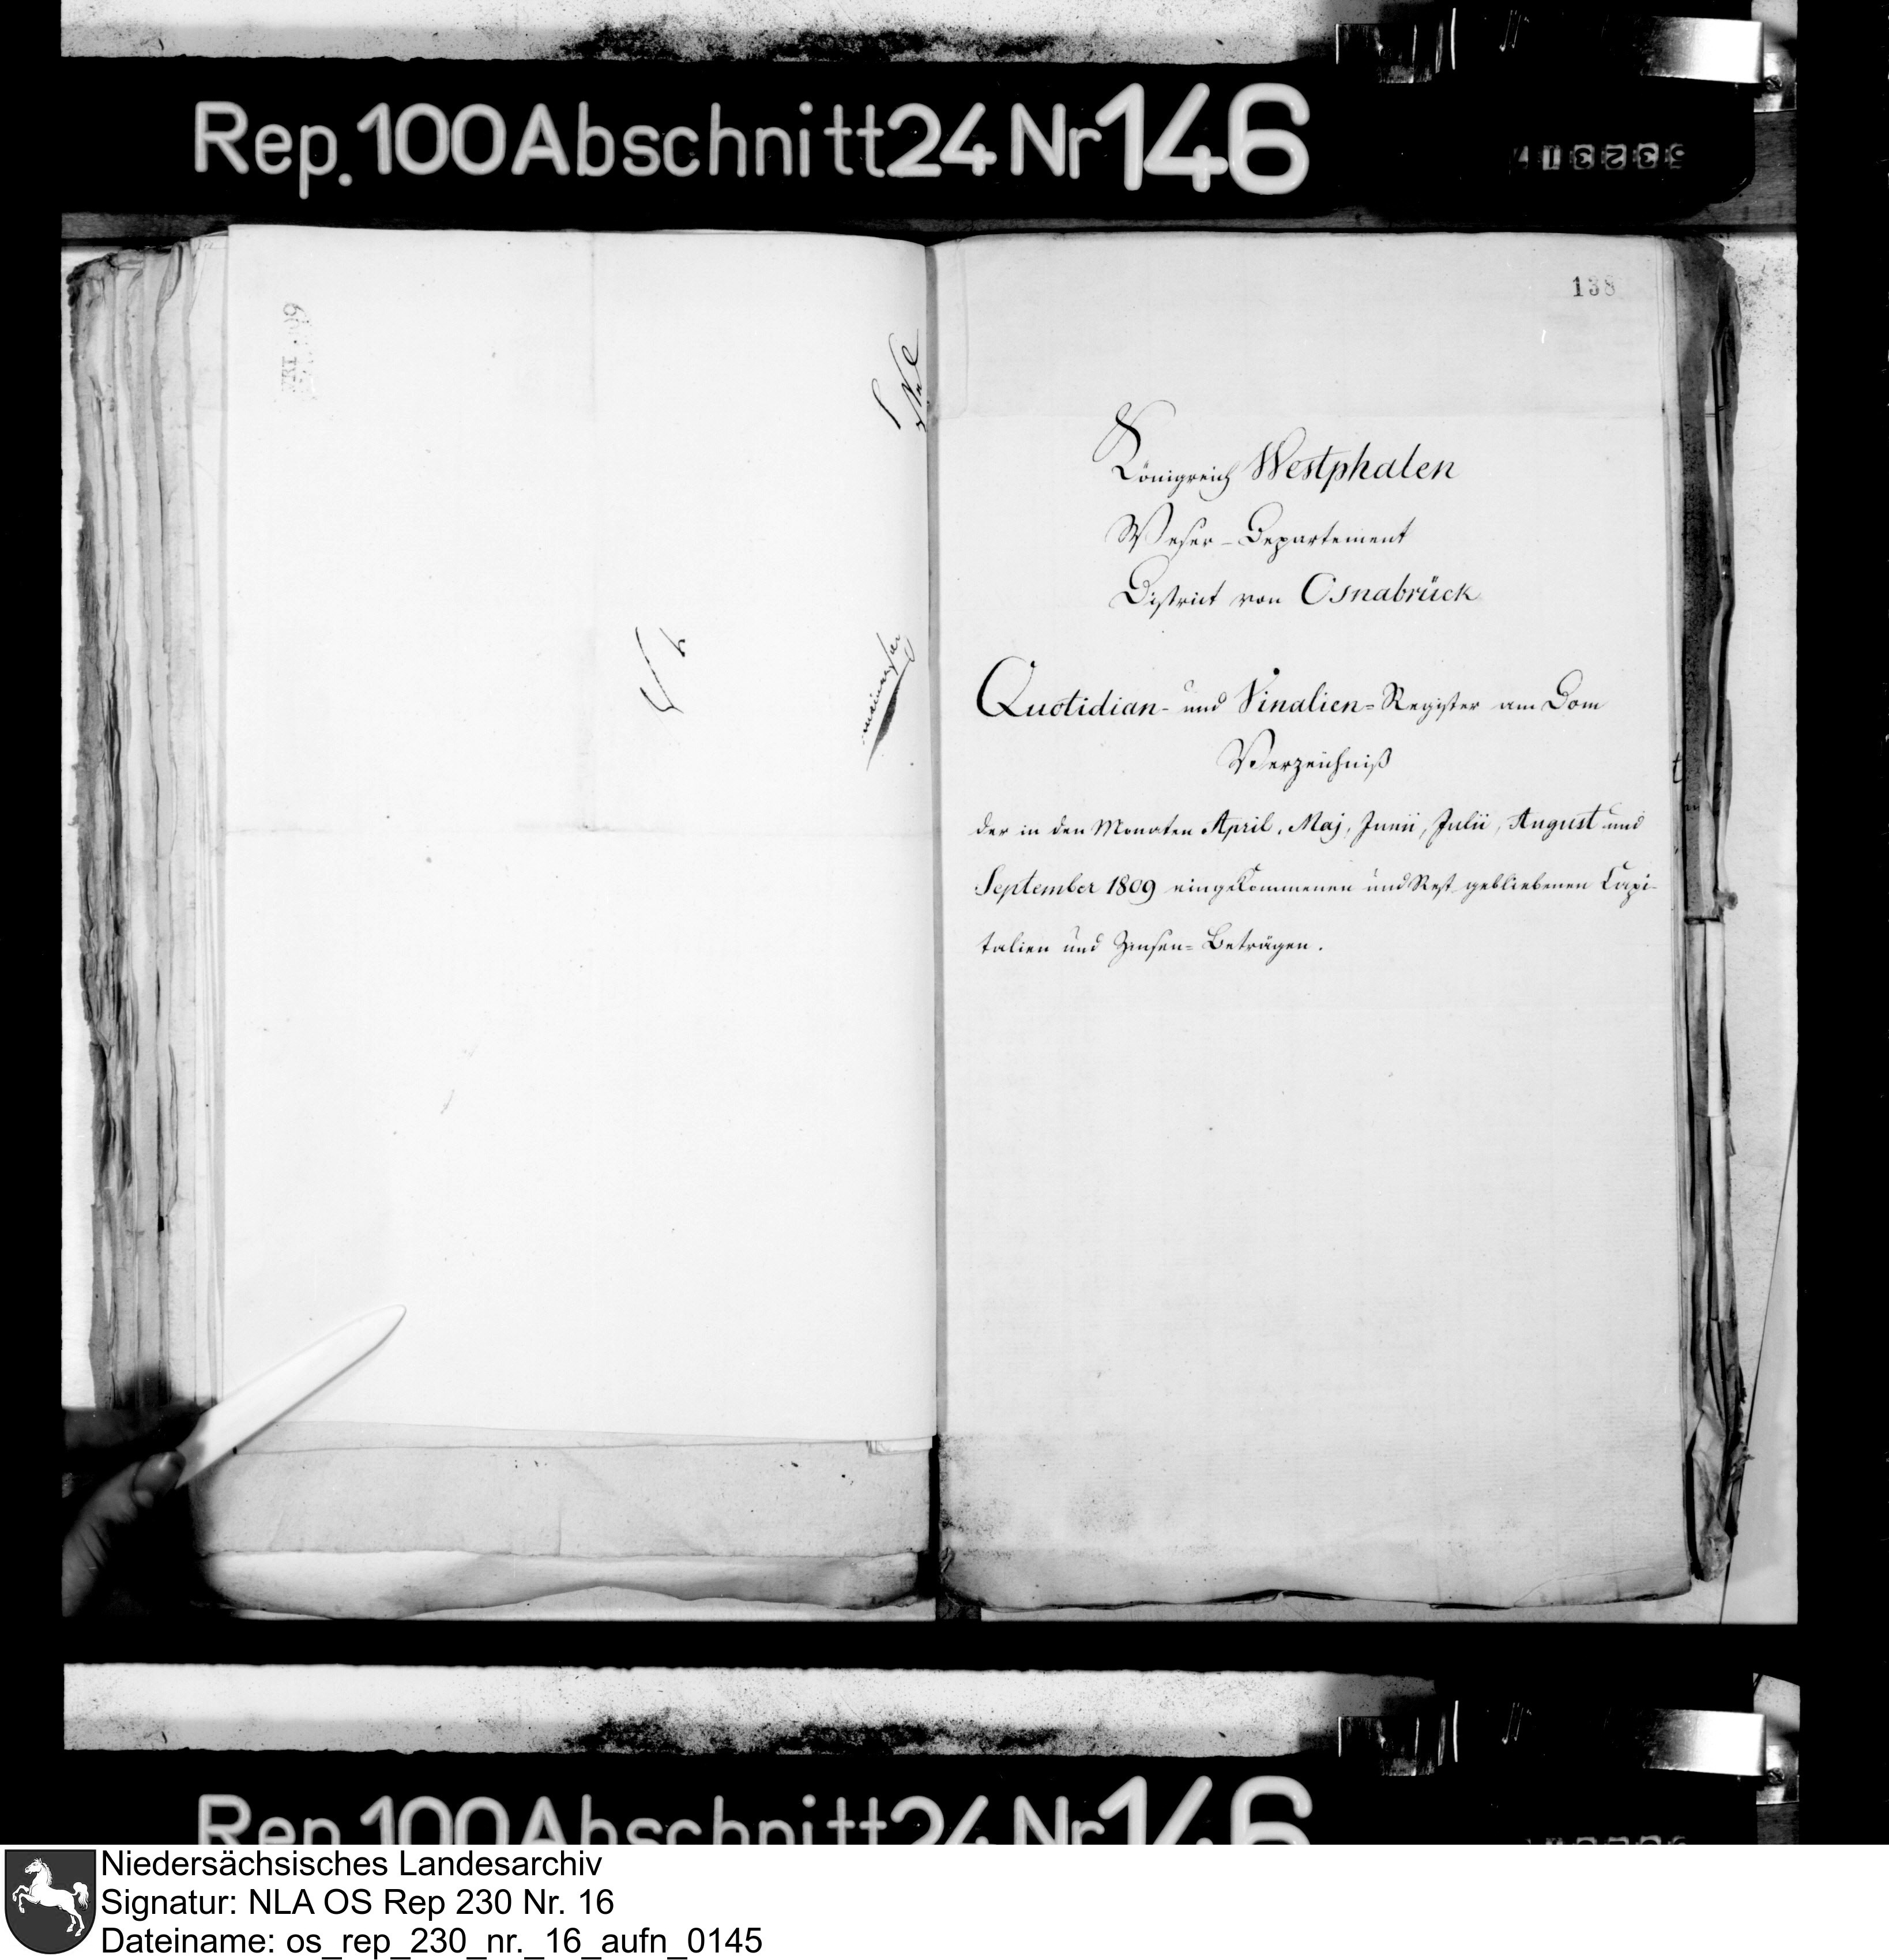 Rep. 100 Abschnitt 24 Nr 146
138
Königreich Westphalen
Weser-Departement
District von Osnabrück
Quotidian- und Vinalien-Register am Dom
Verzeichniß
der in den Monaten April, Maj, Junii, Julii, August und
September 1809 eingekommenen und Rest gebliebenen Capi-
talien und Zinsen-Beträgen.
Rep. 100 Abschnitt 24 Nr 146
Niedersächsisches Landesarchiv
Signatur: NLA OS Rep 230 Nr. 16
Dateiname: os_rep_230_nr._16_aufn_0145